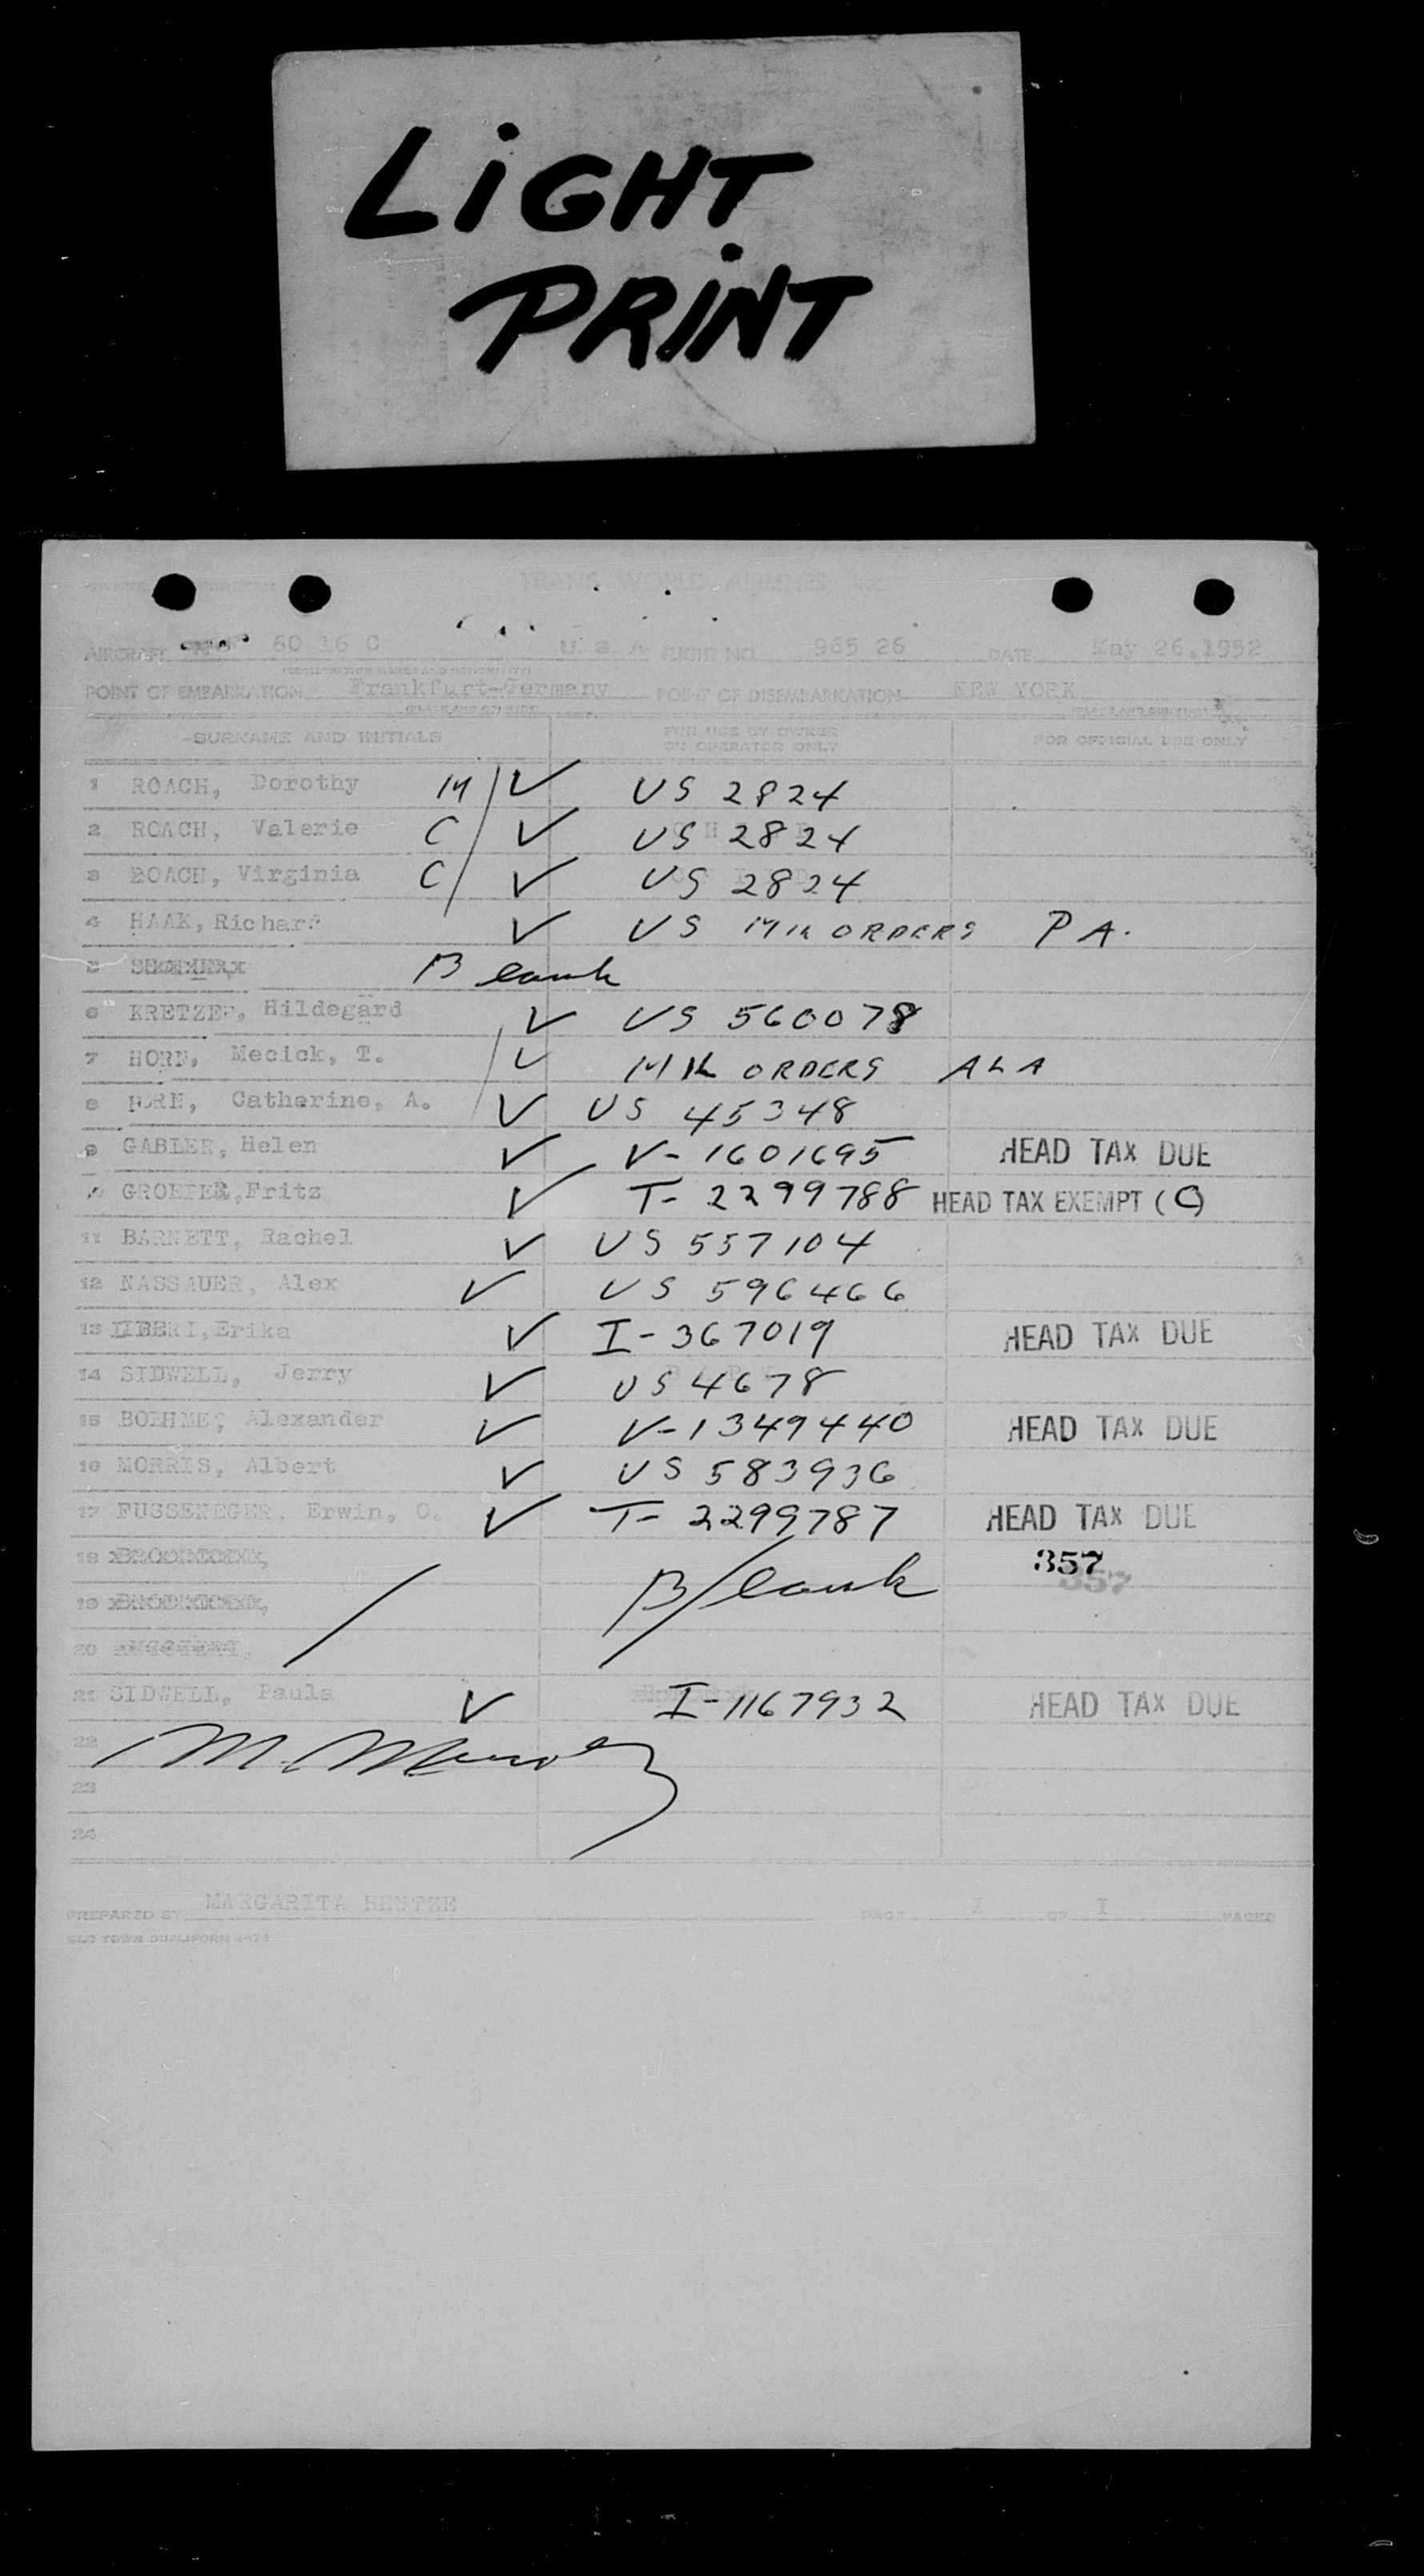 LiGHT
PRiNT
TRANS WORLD AIRLINES
AIRCRAFT 60 16 C U. S. A. FLIGHT NO. 965 26 DATE May 26,1952
(REGISTRATION MARKS AND NATIONALITY)
POINT OF EMBARKATION Frankfurt-Germany POINT OF DISEMBARKATION NEW YORK
(PLACE AND COUNTRY) (PLACE AND COUNTRY)
SURNAME AND INITIALS FOR USE BY OWNER OR OPERATOR ONLY FOR OFFICIAL USE ONLY
1 ROACH, Dorothy M ✓ US 2824
2 ROACH, Valerie C ✓ US 2824
3 ROACH, Virginia C ✓ US 2824
4 HAAK, Richard ✓ US MIL ORDERS PA.
5 Blank
6 KRETZER, Hildegard ✓ US 560078
7 HORN, Mecick, T. ✓ MIL ORDERS ALA
8 HORN, Catherine, A. ✓ US 45348
9 GABLER, Helen ✓ V-1601695 HEAD TAX DUE
10 Fritz ✓ T-2299788 HEAD TAX EXEMPT (C)
11 BARNETT, Rachel ✓ US 557104
12 NASSAUER, Alex ✓ US 596466
13 Erika ✓ I-367019 HEAD TAX DUE
14 SIDWELL, Jerry ✓ US 4678
15 BOEHME, Alexander ✓ V-1349440 HEAD TAX DUE
16 MORRIS, Albert ✓ US 583936
17 FUSSENEGER, Erwin, O. ✓ T-2299787 HEAD TAX DUE
18 357 357
19 Blank
20
21 SIDWELL, Paula ✓ I-1167932 HEAD TAX DUE
22
23
24
PREPARED BY MARGARITA HENTZE PAGE I OF I PAGES
OLD TOWN DUPLIFORM